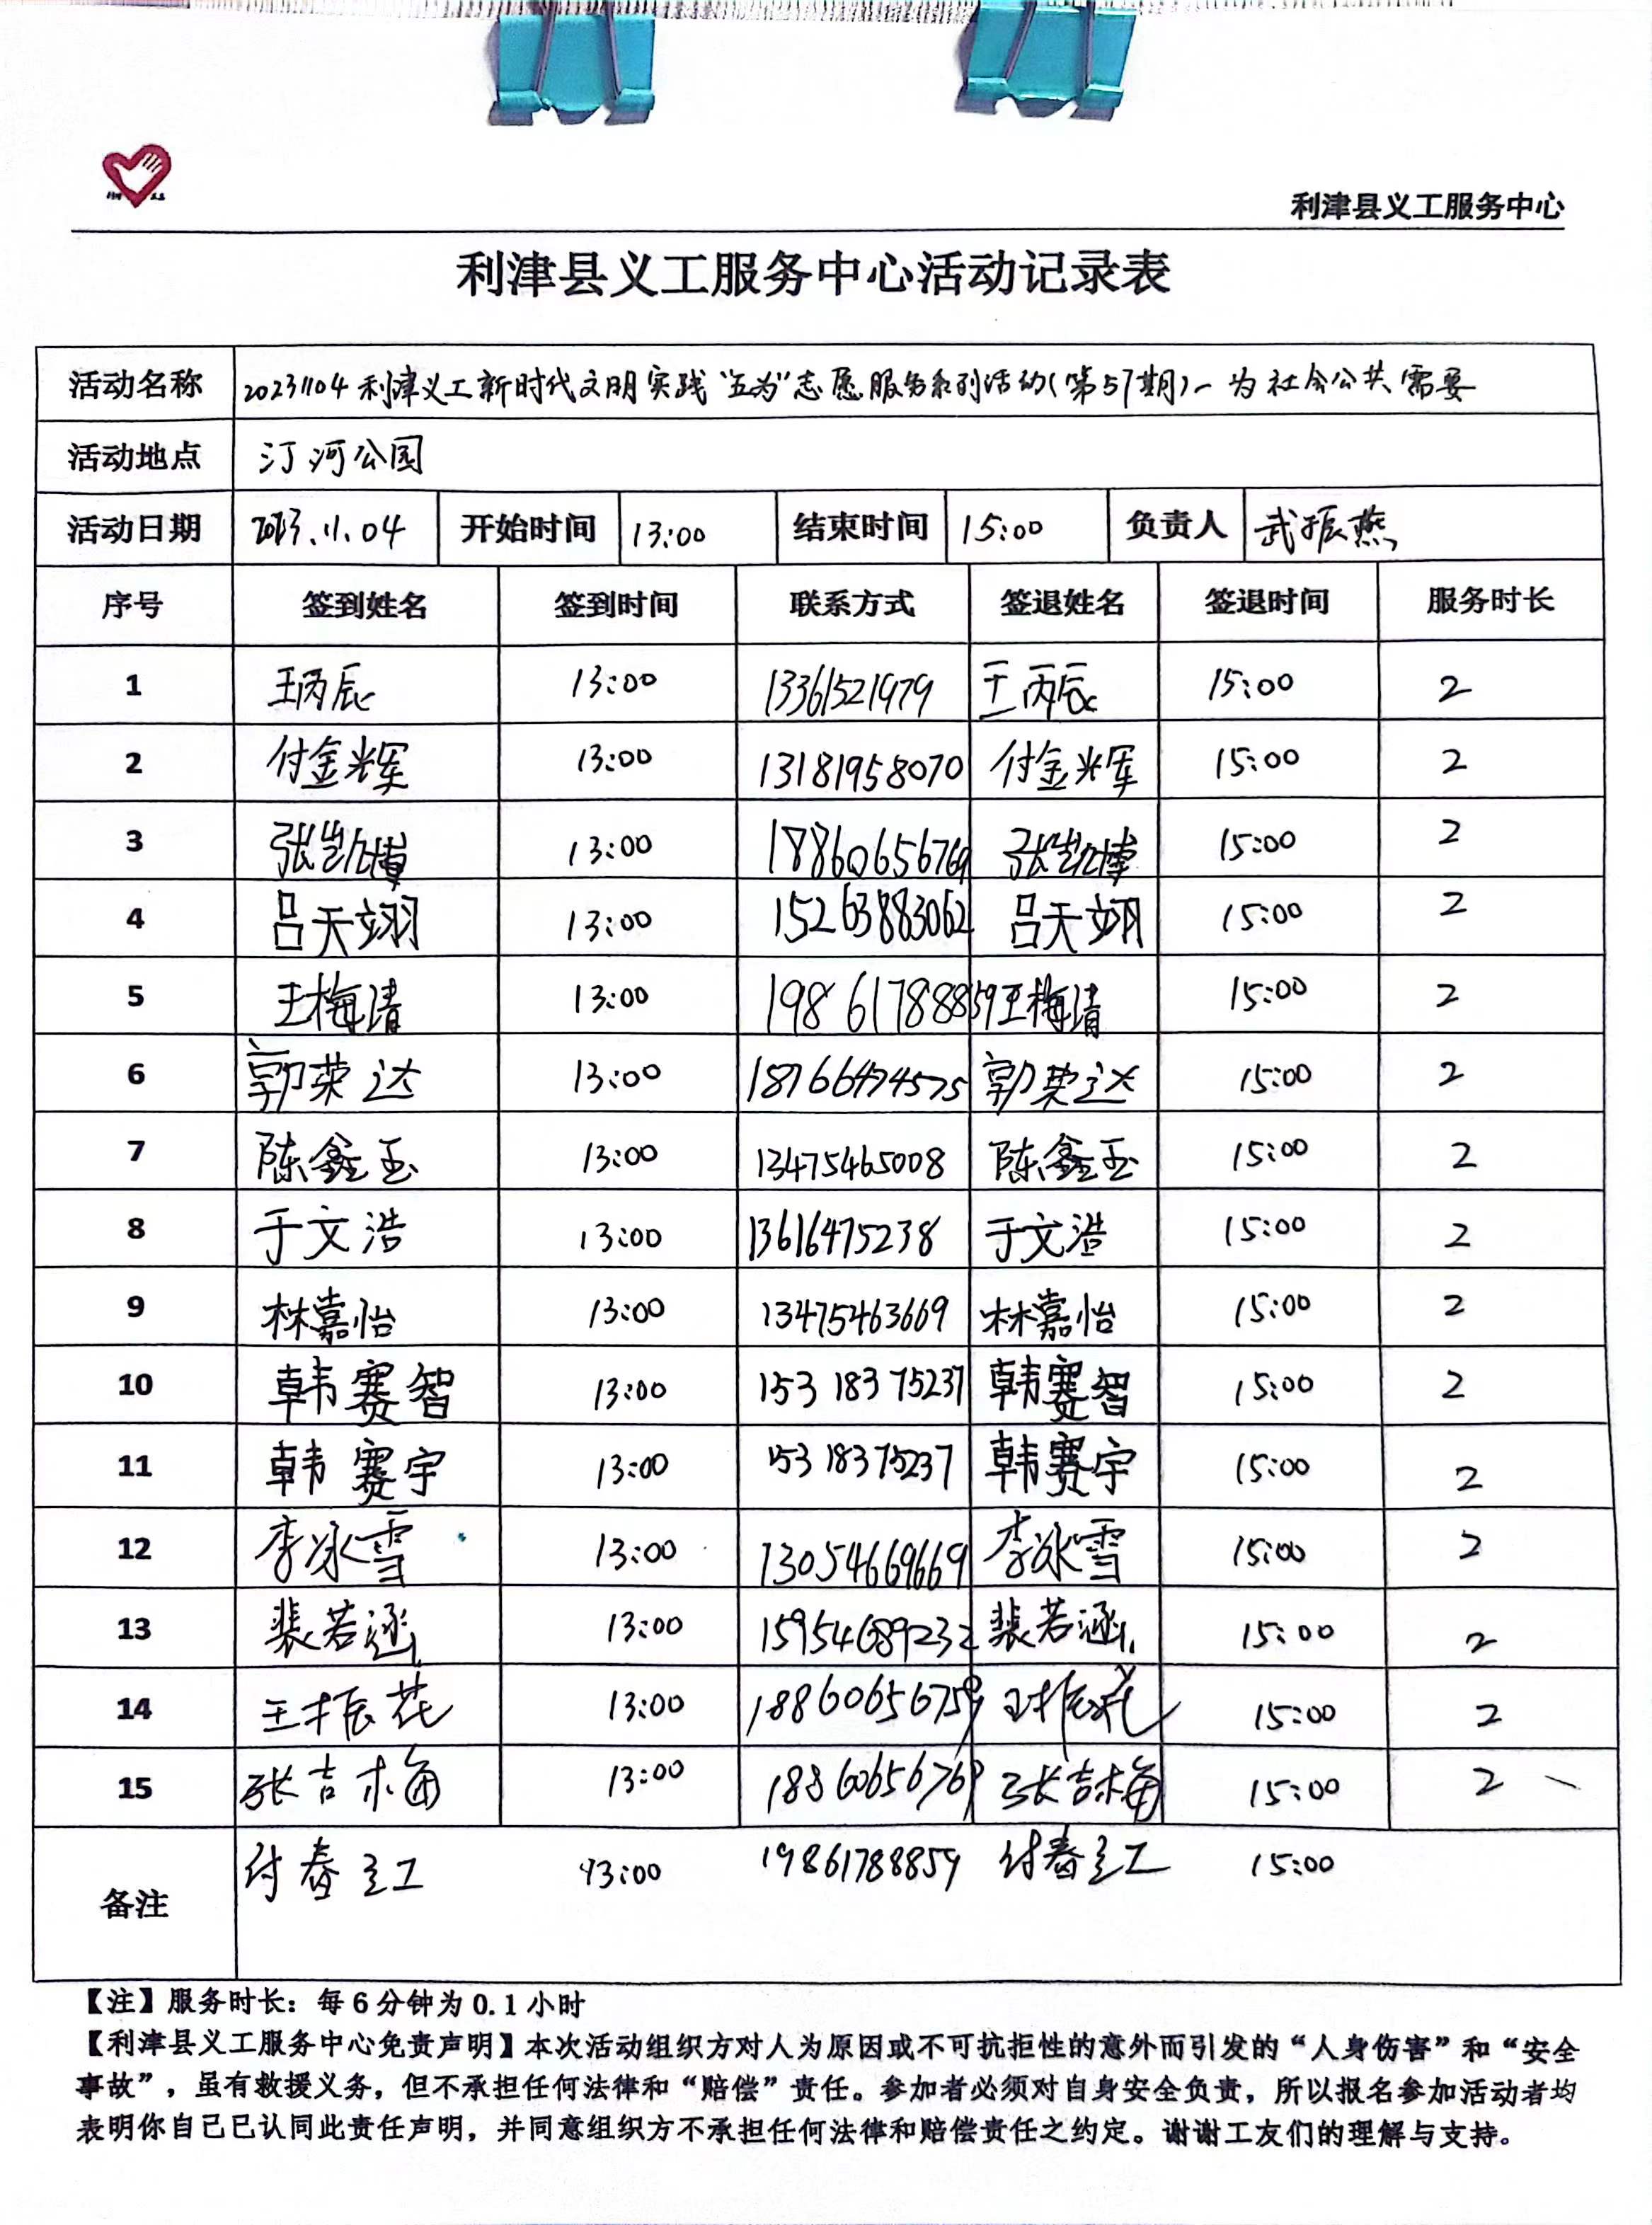 利津县义工服务中心
利津县义工服务中心活动记录表
活动名称 20231104利津义工新时代文明实践“五为”志愿服务系列活动(第57期)-为社会公共需要
活动地点 汀河公园
活动日期 2023.11.04 开始时间 13:00 结束时间 15:00 负责人 武振燕
序号 签到姓名 签到时间 联系方式 签退姓名 签退时间 服务时长
1 王丙辰 13:00 13361521979 王丙辰 15:00 2
2 付金辉 13:00 13181958070 付金辉 15:00 2
3 张凯博 13:00 18860656769 张凯博 15:00 2
4 吕天翊 13:00 15263883062 吕天翊 15:00 2
5 王梅清 13:00 19861788859 王梅清 15:00 2
6 郭荣达 13:00 18766474575 郭荣达 15:00 2
7 陈鑫玉 13:00 13475465008 陈鑫玉 15:00 2
8 于文浩 13:00 13616475238 于文浩 15:00 2
9 林嘉怡 13:00 13475463669 林嘉怡 15:00 2
10 韩赛智 13:00 15318375237 韩赛智 15:00 2
11 韩赛宇 13:00 15318375237 韩赛宇 15:00 2
12 李冰雪 13:00 13054669669 李冰雪 15:00 2
13 裴若涵 13:00 15954689232 裴若涵 15:00 2
14 王振花 13:00 18860656759 王振花 15:00 2
15 张吉梅 13:00 18860656769 张吉梅 15:00 2
备注 付春 13:00 19861788859 付春 15:00
【注】服务时长：每6分钟为0.1小时
【利津县义工服务中心免责声明】本次活动组织方对人为原因或不可抗拒性的意外而引发的“人身伤害”和“安全
事故”，虽有救援义务，但不承担任何法律和“赔偿”责任。参加者必须对自身安全负责，所以报名参加活动者均
表明你自己已认同此责任声明，并同意组织方不承担任何法律和赔偿责任之约定。谢谢工友们的理解与支持。